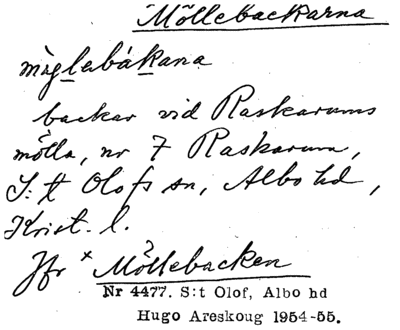 Möllebackarna
mø̀glebákana
backar vid Raskarums
mölla, nr 7 Raskarum,
S:t Olofs sn, Albo hd,
Krist. l.
Jfr × Möllebacken
Nr 4477. S:t Olof, Albo hd
Hugo Areskoug 1954-55.